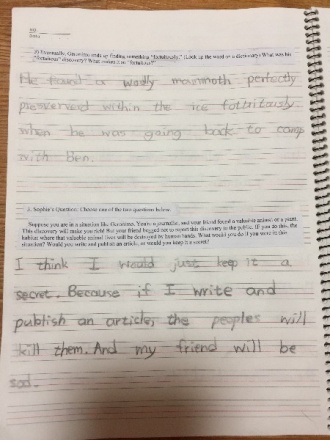 "fortuitous" discovery? What makes it so "fortuitous"?
He found a woolly mammoth perfectly
perserved within the ice fotiritously
when he was going back to camp
with Ben.
Question: Choose one of the two questions below.
Suppose you are in a situation like Geronimo. You're a journalist, and your friend found a valuable animal or a plant.
This discovery will make you rich! But your friend begged you not to report this discovery to the public. If you do this, the
habitat where that valuable animal lives will be destroyed by human hands. What would you do if you were in this
situation? Would you write and publish an article, or would you keep it a secret?
I think I would just keep it a
secret. Because if I write and
publish an article, the peoples will
kill them. And my friend will be
sad.